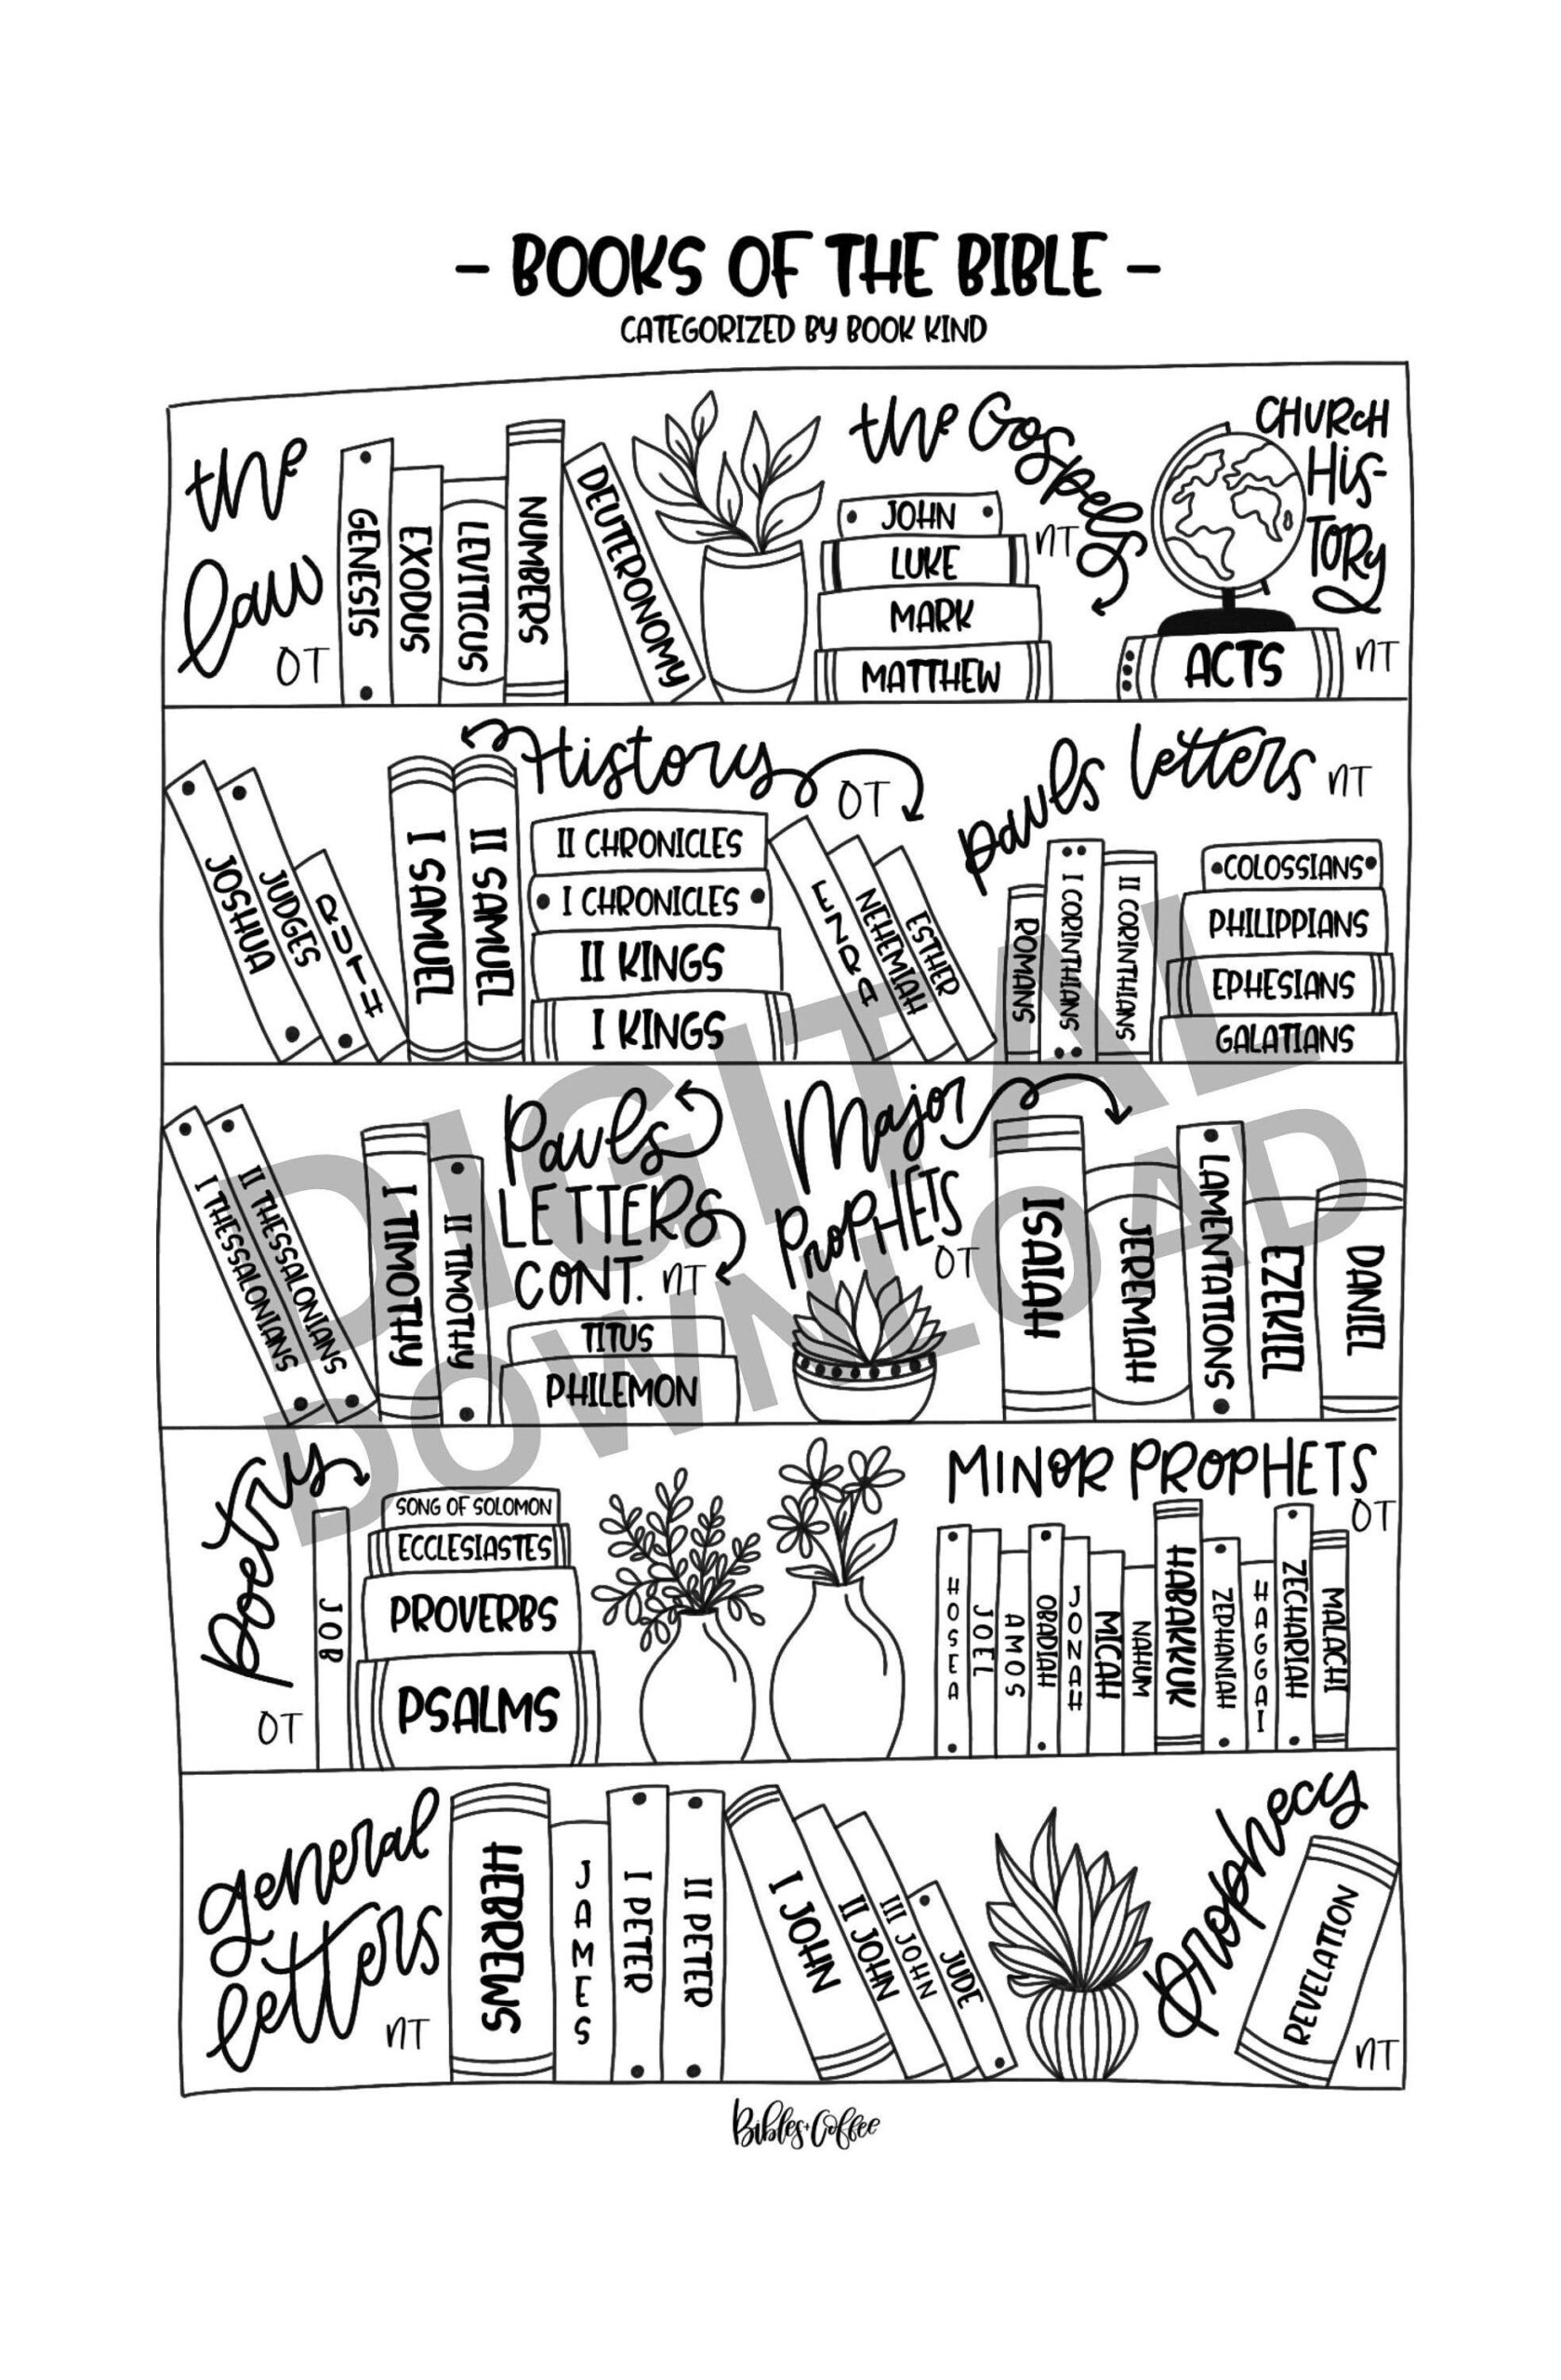 - BOOKS OF THE BIBLE -
CATEGORIZED BY BOOK KIND
the
law
OT
GENESIS
EXODUS
LEVITICUS
NUMBERS
DEUTERONOMY
the Gospels
NT
JOHN
LUKE
MARK
MATTHEW
CHURCH
HIS-
TORY
ACTS
NT
JOSHUA
JUDGES
RUTH
I SAMUEL
II SAMUEL
History
OT
II CHRONICLES
I CHRONICLES
II KINGS
I KINGS
EZRA
NEHEMIAH
ESTHER
pauls letters NT
ROMANS
I CORINTHIANS
II CORINTHIANS
COLOSSIANS
PHILIPPIANS
EPHESIANS
GALATIANS
I THESSALONIANS
II THESSALONIANS
I TIMOTHY
II TIMOTHY
Pauls
LETTERS
CONT. NT
TITUS
PHILEMON
Major
PROPHETS
OT
ISAIAH
JEREMIAH
LAMENTATIONS
EZEKIEL
DANIEL
DIGITAL
DOWNLOAD
Poetry
OT
JOB
SONG OF SOLOMON
ECCLESIASTES
PROVERBS
PSALMS
MINOR PROPHETS
OT
HOSEA
JOEL
AMOS
OBADIAH
JONAH
MICAH
NAHUM
HABAKKUK
ZEPHANIAH
HAGGAI
ZECHARIAH
MALACHI
general
letters
NT
HEBREWS
JAMES
I PETER
II PETER
I JOHN
II JOHN
III JOHN
JUDE
Prophecy
REVELATION
NT
Bibles+Coffee